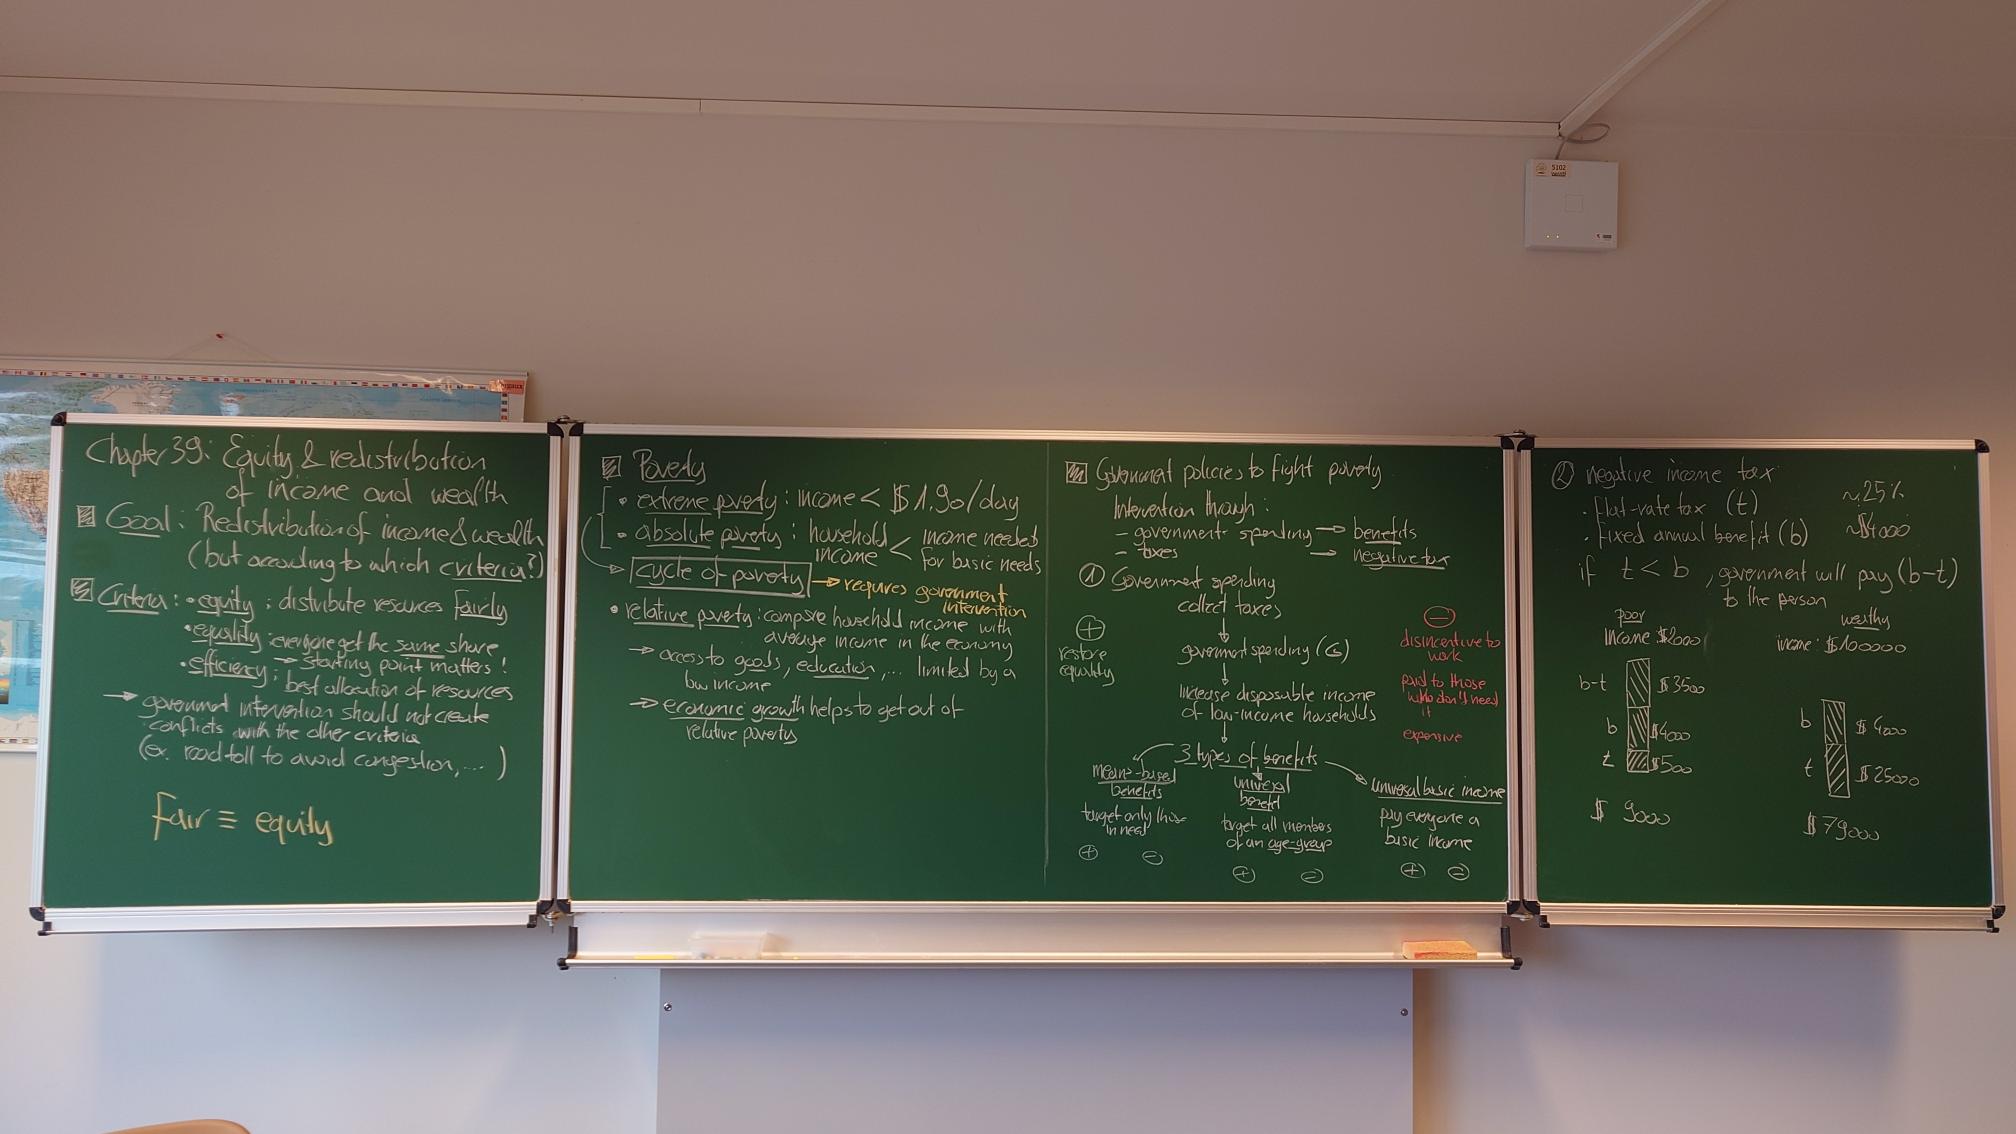 Chapter 39: Equity & redistribution
of income and wealth
Goal: Redistribution of income & wealth
(but according to which criteria?)
Criteria: • equity: distribute resources fairly
• equality: everyone get the same share
→ starting point matters!
• efficiency: best allocation of resources
→ government intervention should not create
conflicts with the other criteria
(ex. road toll to avoid congestion, ...)
Fair ≡ equity
Poverty
• extreme poverty: income < $1,90/day
• absolute poverty: household income < income needed for basic needs
cycle of poverty → requires government intervention
• relative poverty: compare household income with
average income in the economy
→ access to goods, education, ... limited by a
low income
→ economic growth helps to get out of
relative poverty
Government policies to fight poverty
Intervention through:
– government spending → benefits
– taxes → negative tax
① Government spending
collect taxes
↓
government spending (G)
↓
increase disposable income
of low-income households
↓
3 types of benefits
⊕
restore
equality
⊖
disincentive to
work
paid to those
who don't need
it
expensive
means-based
benefits
target only those
in need
⊕ ⊖
universal
benefit
target all members
of an age-group
⊕ ⊖
universal basic income
pay everyone a
basic income
⊕ ⊖
② negative income tax
• flat-rate tax (t) ~25%
• fixed annual benefit (b) ~$4000
if t < b, government will pay (b-t)
to the person
poor
income $2000
b-t $3500
b $4000
t $500
$ 9000
wealthy
income: $100000
b $4000
t $25000
$79000
5102